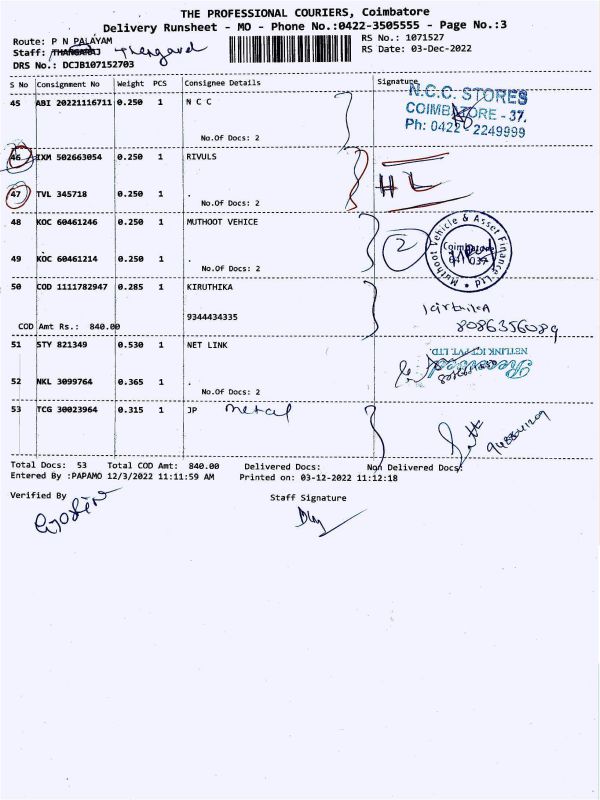 THE PROFESSIONAL COURIERS, Coimbatore
Delivery Runsheet - MO - Phone No.:0422-3505555 - Page No.:3
Route: P N PALAYAM
RS No.: 1071527
Staff:
RS Date: 03-Dec-2022
DRS No.: DCJB107152703
S No Consignment No Weight PCS Consignee Details Signature
45 ABI 20221116711 0.250 1 N C C
N.C.C. STORES
COIMBATORE - 37.
Ph: 0422 - 2249999
No.Of Docs: 2
46 IXM 502663054 0.250 1 RIVULS
47 TVL 345718 0.250 1 .
No.Of Docs: 2
48 KOC 60461246 0.250 1 MUTHOOT VEHICE
2
Muthoot Vehicle & Asset Finance Ltd
Coimbatore
49 KOC 60461214 0.250 1 .
No.Of Docs: 2
50 COD 1111782947 0.285 1 KIRUTHIKA
9344434335
8086356089
COD Amt Rs.: 840.00
51 STY 821349 0.530 1 NET LINK
NETLINK ICT PVT. LTD.
Received
52 NKL 3099764 0.365 1 .
No.Of Docs: 2
53 TCG 30023964 0.315 1 JP metal
Total Docs: 53 Total COD Amt: 840.00 Delivered Docs: Non Delivered Docs:
Entered By :PAPAMO 12/3/2022 11:11:59 AM Printed on: 03-12-2022 11:12:18
Verified By
Staff Signature